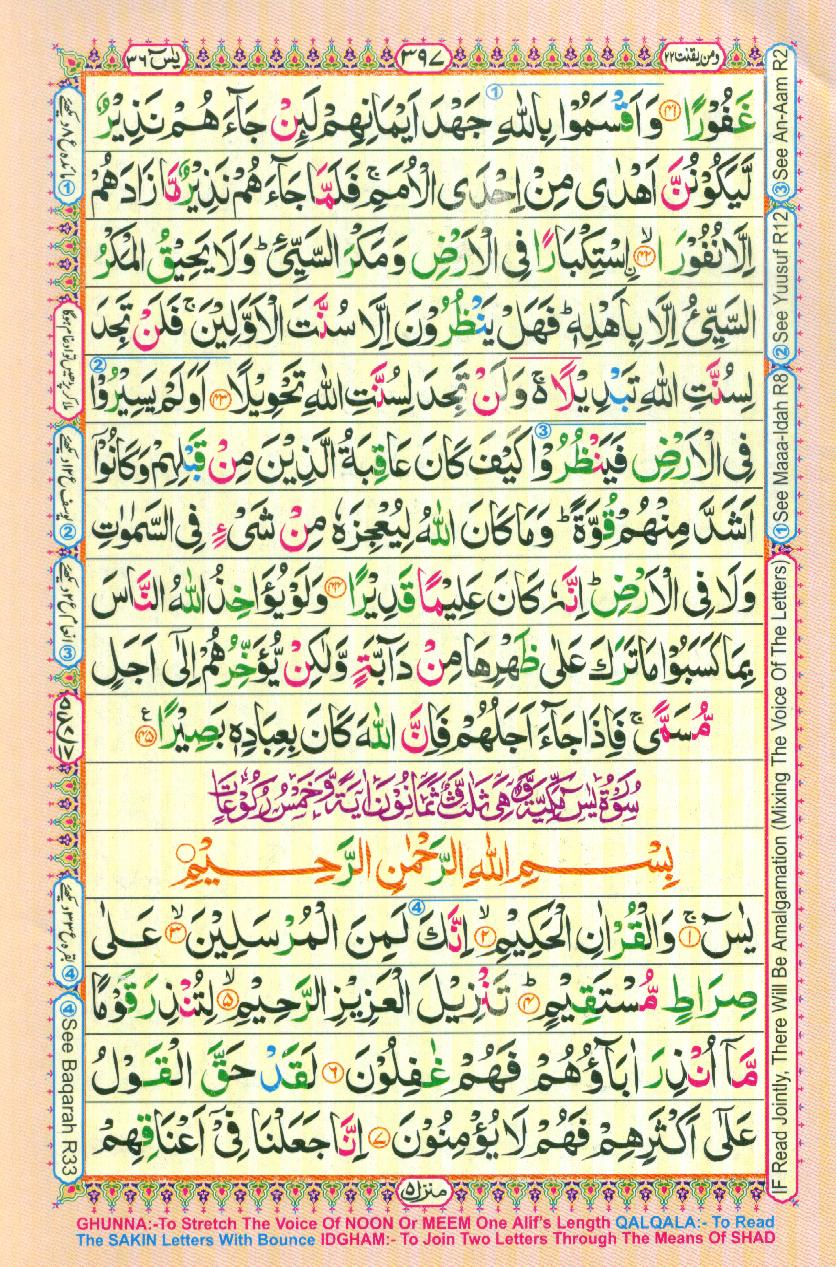 يٰسٓ ٣٦
٣٩٧
ومن يقنت ٢٢
غَفُوْرًا ﴿٤١﴾ وَاَقْسَمُوْا بِاللّٰهِ جَهْدَ اَيْمَانِهِمْ لَئِنْ جَآءَهُمْ نَذِيْرٌ
لَّيَكُوْنُنَّ اَهْدٰى مِنْ اِحْدَى الْاُمَمِ ۚ فَلَمَّا جَآءَهُمْ نَذِيْرٌ مَّا زَادَهُمْ
اِلَّا نُفُوْرَا ﴿٤٢﴾ اِسْتِكْبَارًا فِى الْاَرْضِ وَمَكْرَ السَّيِّئِ ؕ وَلَا يَحِيْقُ الْمَكْرُ
السَّيِّئُ اِلَّا بِاَهْلِهٖ ؕ فَهَلْ يَنْظُرُوْنَ اِلَّا سُنَّتَ الْاَوَّلِيْنَ ۚ فَلَنْ تَجِدَ
لِسُنَّتِ اللّٰهِ تَبْدِيْلًا ۚ وَلَنْ تَجِدَ لِسُنَّتِ اللّٰهِ تَحْوِيْلًا ﴿٤٣﴾ اَوَلَمْ يَسِيْرُوْا
فِى الْاَرْضِ فَيَنْظُرُوْا كَيْفَ كَانَ عَاقِبَةُ الَّذِيْنَ مِنْ قَبْلِهِمْ وَكَانُوْٓا
اَشَدَّ مِنْهُمْ قُوَّةً ؕ وَمَا كَانَ اللّٰهُ لِيُعْجِزَهٗ مِنْ شَىْءٍ فِى السَّمٰوٰتِ
وَلَا فِى الْاَرْضِ ؕ اِنَّهٗ كَانَ عَلِيْمًا قَدِيْرًا ﴿٤٤﴾ وَلَوْ يُؤَاخِذُ اللّٰهُ النَّاسَ
بِمَا كَسَبُوْا مَا تَرَكَ عَلٰى ظَهْرِهَا مِنْ دَآبَّةٍ وَّلٰكِنْ يُّؤَخِّرُهُمْ اِلٰٓى اَجَلٍ
مُّسَمًّى ۚ فَاِذَا جَآءَ اَجَلُهُمْ فَاِنَّ اللّٰهَ كَانَ بِعِبَادِهٖ بَصِيْرًا ﴿٤٥﴾ ع
سُوْرَةُ يٰسٓ مَكِّيَّةٌ وَّهِىَ ثَلٰثٌ وَّثَمَانُوْنَ اٰيَةً وَّخَمْسُ رُكُوْعَاتٍ
بِسْمِ اللّٰهِ الرَّحْمٰنِ الرَّحِيْمِ
يٰسٓ ۚ ﴿١﴾ وَالْقُرْاٰنِ الْحَكِيْمِ ۙ ﴿٢﴾ اِنَّكَ لَمِنَ الْمُرْسَلِيْنَ ۙ ﴿٣﴾ عَلٰى
صِرَاطٍ مُّسْتَقِيْمٍ ؕ ﴿٤﴾ تَنْزِيْلَ الْعَزِيْزِ الرَّحِيْمِ ۙ ﴿٥﴾ لِتُنْذِرَ قَوْمًا
مَّآ اُنْذِرَ اٰبَآؤُهُمْ فَهُمْ غٰفِلُوْنَ ﴿٦﴾ لَقَدْ حَقَّ الْقَوْلُ
عَلٰٓى اَكْثَرِهِمْ فَهُمْ لَا يُؤْمِنُوْنَ ﴿٧﴾ اِنَّا جَعَلْنَا فِىْٓ اَعْنَاقِهِمْ
منزل ٥
③See An-Aam R2
②See Yuusuf R12
①See Maaa-Idah R8
IF Read Jointly, There Will Be Amalgamation (Mixing The Voice Of The Letters)
④See Baqarah R33
GHUNNA:-To Stretch The Voice Of NOON Or MEEM One Alif's Length QALQALA:- To Read
The SAKIN Letters With Bounce IDGHAM:- To Join Two Letters Through The Means Of SHAD